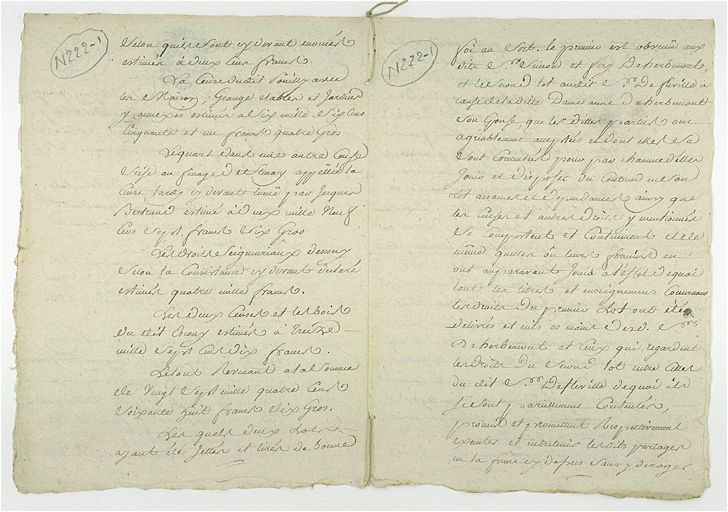 N222-1
selon qu'ils sont cy devant enoncés
estimés à deux cens francs
La Cense du dit Pouilly avec
les Maison, Grange etables et Jardins
y annexés estimés à six mille six Cens
Cinquante et un francs quatre Gros.
Le quart dans une autre Cense
size au finage d'Estenay appellée la
Cense cy devant tenue par Jacques
Bertrand estimé à deux mille Neuf
Cens sept francs six Gros
Les droits seigneuriaux dessous
selon la Consistance cy devant declaré
estimés quatre mille francs.
Les deux Censes et les bois
du dit estimés à treize
mille sept Cens dix francs.
Le tout Revenant à la somme
de Vingt sept mille quatre Cens
soixante huit francs dix Gros.
Les quels deux Lots
ayant été Jettés et tirés de bonne
N222-1
foi au sort. le premier est obvenu aux
dits Srs Simon et de herbemont,
et le second lot audit Sr Defleville à
cause de laditte Dame anne de herbemont
son Epouse, que les dittes parties ont
agréablement acceptés et dont elles se
sont contentés pour par chacune d'elles
Jouir et disposer du Contenu en son
lot annexes et dependances ainsy que
les Censes et autres droits y mentionnés
se Comportent et Contiennent et de
même qu'elles ou leurs fermiers en
ont auparavant Joui à l'effet de quoi
tout les titres et enseignemens Concernans
les droits du premier Lot ont été
delivrés et mis es mains desd. Srs
De herbemont et Ceux qui regardent
les droits du second lot entre Celles
du dit Sr Defleville de quoi ils
se sont pareillement Contentés,
promis et promettent Respectivement
executer et entretenir lesdits partages
en la forme cy dessus sans y deroger